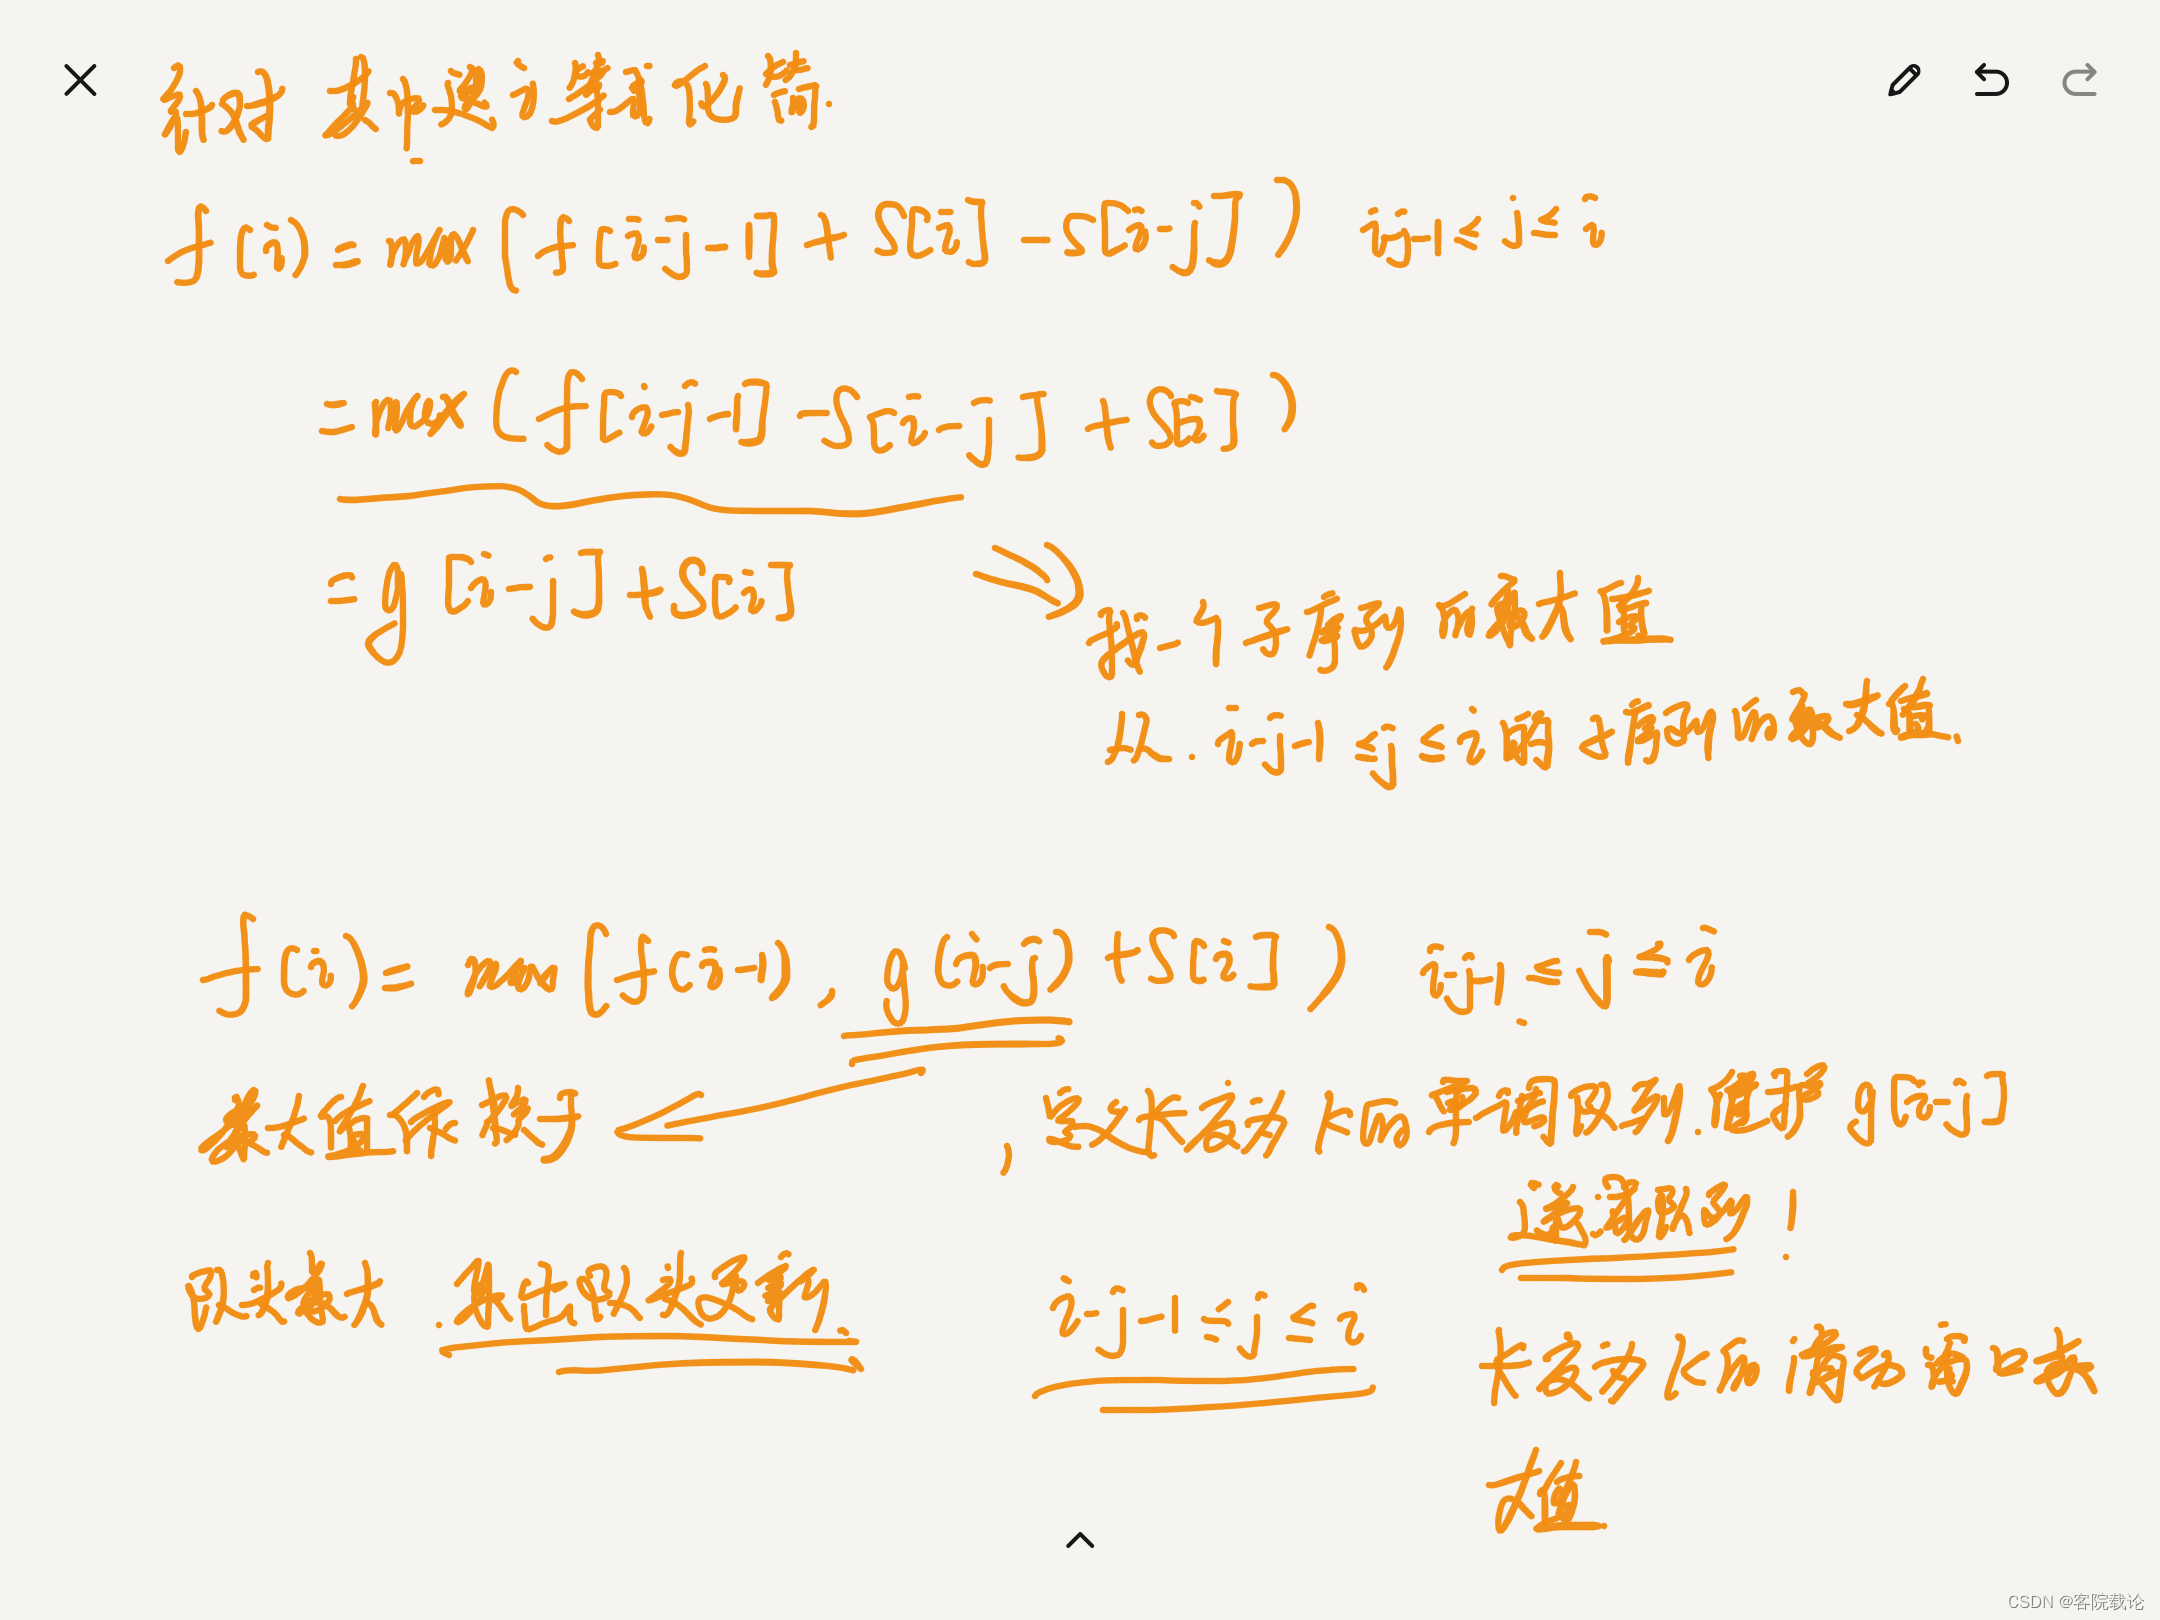 针对其中递立等式化简.
f(i) = max(f[i-j-1] + S[i] - S[i-j]) i-j-1 ≤ j ≤ i
= max(f[i-j-1] - S[i-j] + S[i])
= g[i-j] + S[i]
找一个子序列的最大值
从. i-j-1 ≤ j ≤ i的子序列的最大值.
f(i) = max(f(i-1), g(i-j) + S[i]) i-j-1 ≤ j ≤ i
最大值保持于
, 定义长度为k的单调队列.维护g[i-j]
递减队列!
队头最大.
i-j-1 ≤ j ≤ i
长度为k的滑动窗口求
大值.
CSDN @客院载论